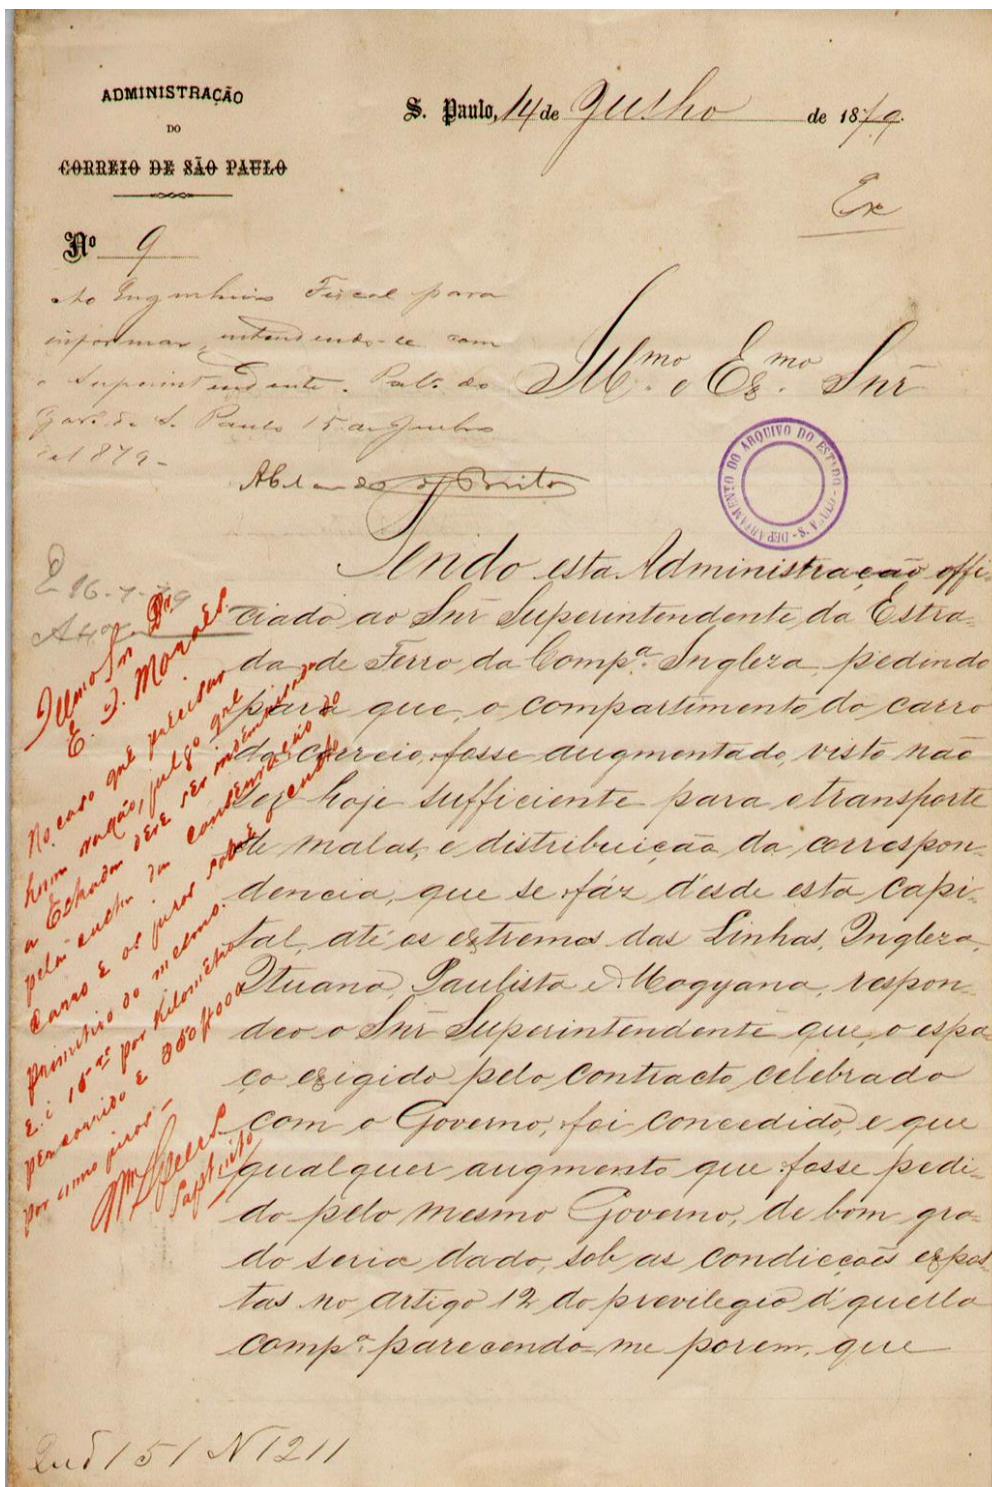 ADMINISTRAÇÃO
DO
CORREIO DE SÃO PAULO
S. Paulo, 14 de Julho de 1879.
Nº 9
Ao Engenheiro Fiscal para
informar, entendendo-se com
o Superintendente. Palº do
Govº de S. Paulo 15 de Julho
de 1879-
Abelardo de Brito
Illmo. e Exmo. Snr
DEPARTAMENTO DO ARQUIVO DO ESTADO
Tendo esta Administração offi-
ciado ao Snr Superintendente da Estra-
da de Ferro da Compª. Ingleza, pedindo
para que, o compartimento do carro
do correio, fosse augmentado, visto não
ser hoje sufficiente para o transporte
de malas, e distribuição da correspon-
dencia, que se fáz d'esde esta capi-
tal, até os extremos das Linhas, Ingleza,
Ituana, Paulista e Mogyana, respon-
deo o Snr Superintendente que, o espa-
ço exigido pelo contracto celebrado
com o Governo, foi concedido, e que
qualquer augmento que fosse pedi-
do pelo mesmo Governo, de bom gra-
do seria dado, sob as condicções expos-
tas no artigo 12 do previlegio d'quella
compª. parecendo-me porem, que
16-7-79
Illmo Sn Dr
E. J. Moraes
No caso que precisar
hum vagão, julgo que
a Estrada deve ser indemnisada
pela custa da conservação do
carro e os juros sobre custo
primitivo do mesmo.
E. é 15 rs por kilometro
percorrido e 350$000
por anno juros-
Wm Speers
Suptinto
151 N 1211